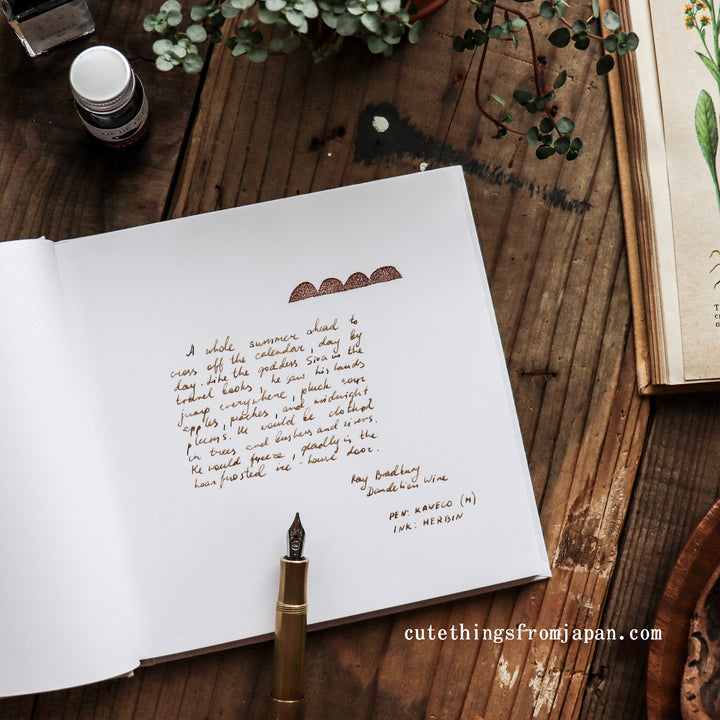 A whole summer ahead to
cross off the calendar, day by
day. Like the goddess Siva in the
travel books, he saw his hands
jump everywhere, pluck sour
apples, peaches, and midnight
plums. He would be clothed
in trees and bushes and rivers.
He would freeze, gladly, in the
hoarfrosted ice-house door.
Ray Bradbury
Dandelion Wine
PEN: KAWECO (M)
INK: HERBIN
cutethingsfromjapan.com